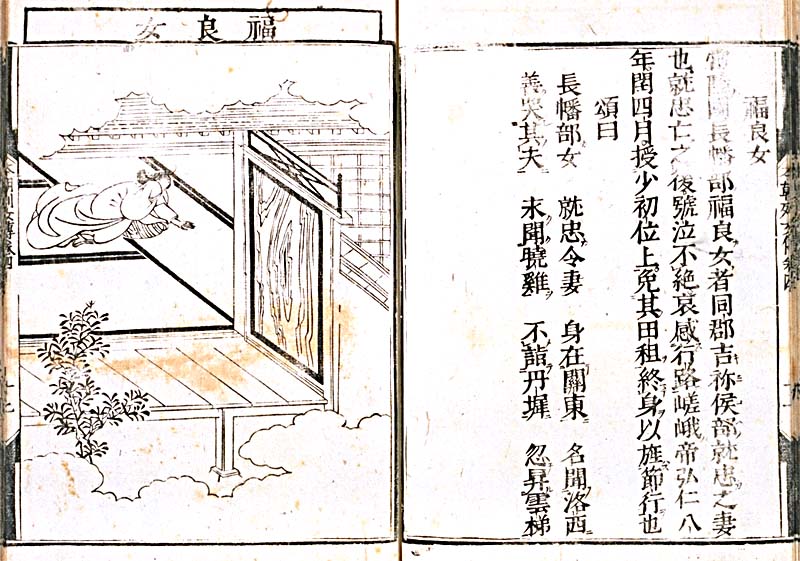 福良女
常陸國長幡部福良女者同郡吉祢侯部就忠之妻
也就忠亡之後號泣不絕哀感行路嵯峨帝弘仁八
年閏四月授少初位上免其田租終身以旌節行也
頌曰
長幡部女 就忠令妻 身在關東 名聞洛西
義哭其夫 未聞曉雞 不詣丹墀 忽昇雲梯
福良女